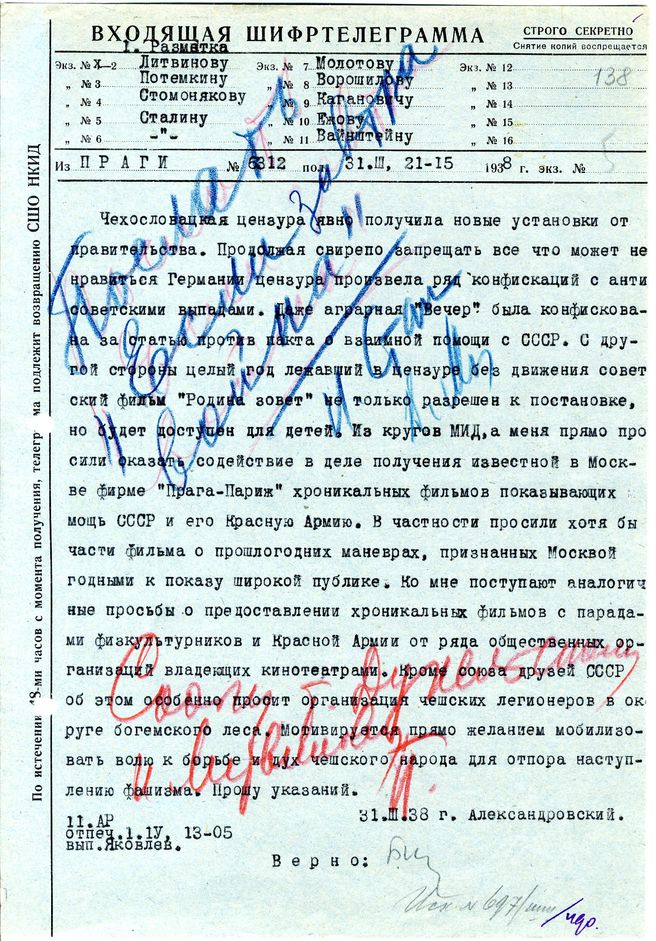 ВХОДЯЩАЯ ШИФРТЕЛЕГРАММА
СТРОГО СЕКРЕТНО
Снятие копий воспрещается
1. Разметка
Экз. № х-2 Литвинову Экз. № 7 Молотову Экз. № 12
„ № 3 Потемкину „ № 8 Ворошилову „ № 13
138
„ № 4 Стомонякову „ № 9 Кагановичу „ № 14
„ № 5 Сталину „ № 10 Ежову „ № 15
„ № 6 -"- „ № 11 Вайнштейну „ № 16
Из ПРАГИ № 6312 пол. 31.Ш, 21-15 1938 г. экз. № 5
Чехословацкая цензура явно получила новые установки от
правительства. Продолжая свирепо запрещать все что может не
нравиться Германии цензура произвела ряд конфискаций с анти
советскими выпадами. Даже аграрная "Вечер" была конфискова-
на за статью против пакта о взаимной помощи с СССР. С дру-
гой стороны целый год лежавший в цензуре без движения совет
ский фильм "Родина зовет" не только разрешен к постановке,
но будет доступен для детей. Из кругов МИД,а меня прямо про
сили оказать содействие в деле получения известной в Моск-
ве фирме "Прага-Париж" хроникальных фильмов показывающих
мощь СССР и его Красную Армию. В частности просили хотя бы
части фильма о прошлогодних маневрах, признанных Москвой
годными к показу широкой публике. Ко мне поступают аналогич
ные просьбы о предоставлении хроникальных фильмов с парада-
ми физкультурников и Красной Армии от ряда общественных ор-
ганизаций владеющих кинотеатрами. Кроме союза друзей СССР
об этом особенно просит организация чешских легионеров в ок
руге богемского леса. Мотивируется прямо желанием мобилизо-
вать волю к борьбе и дух чешского народа для отпора наступ-
лению фашизма. Прошу указаний.
31.Ш.38 г. Александровский.
11.АР
отпеч.1.1У, 13-05
вып.Яковлев.
Верно:
Послать
"Если завтра
война"
И Стал
Сообщ.
и Литвинову
Исх № 697
По истечении 48-ми часов с момента получения, телеграмма подлежит возвращению СШО НКИД